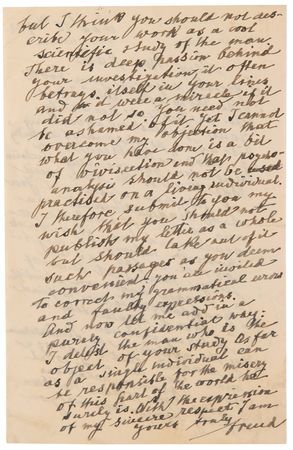 but I think you should not des-
cribe your work as a cool
scientific study of the man.
There is deep passion behind
your investigation, it often
betrays itself in your lines
and it were a miracle if it
did not so. You need not
be ashamed of it. Yet I cannot
overcome my objection that
what you have done is a bit
of vivisection and that psycho-
analysis should not be used
practised on a living individual.
I therefore submit to you my
wish that you should not
publish my letter as a whole
but should take out of it
such passages as you deem
convenient, you are invited
to correct my grammatical errors
and faulty expressions.
And now let me add in a
purely confidential way:
I detest the man who is the
object of your study. As far
as a single individual can
be responsible for the misery
of this part of the world he
surely is. With the expression
of my sincere respect I am
yours truly
Freud